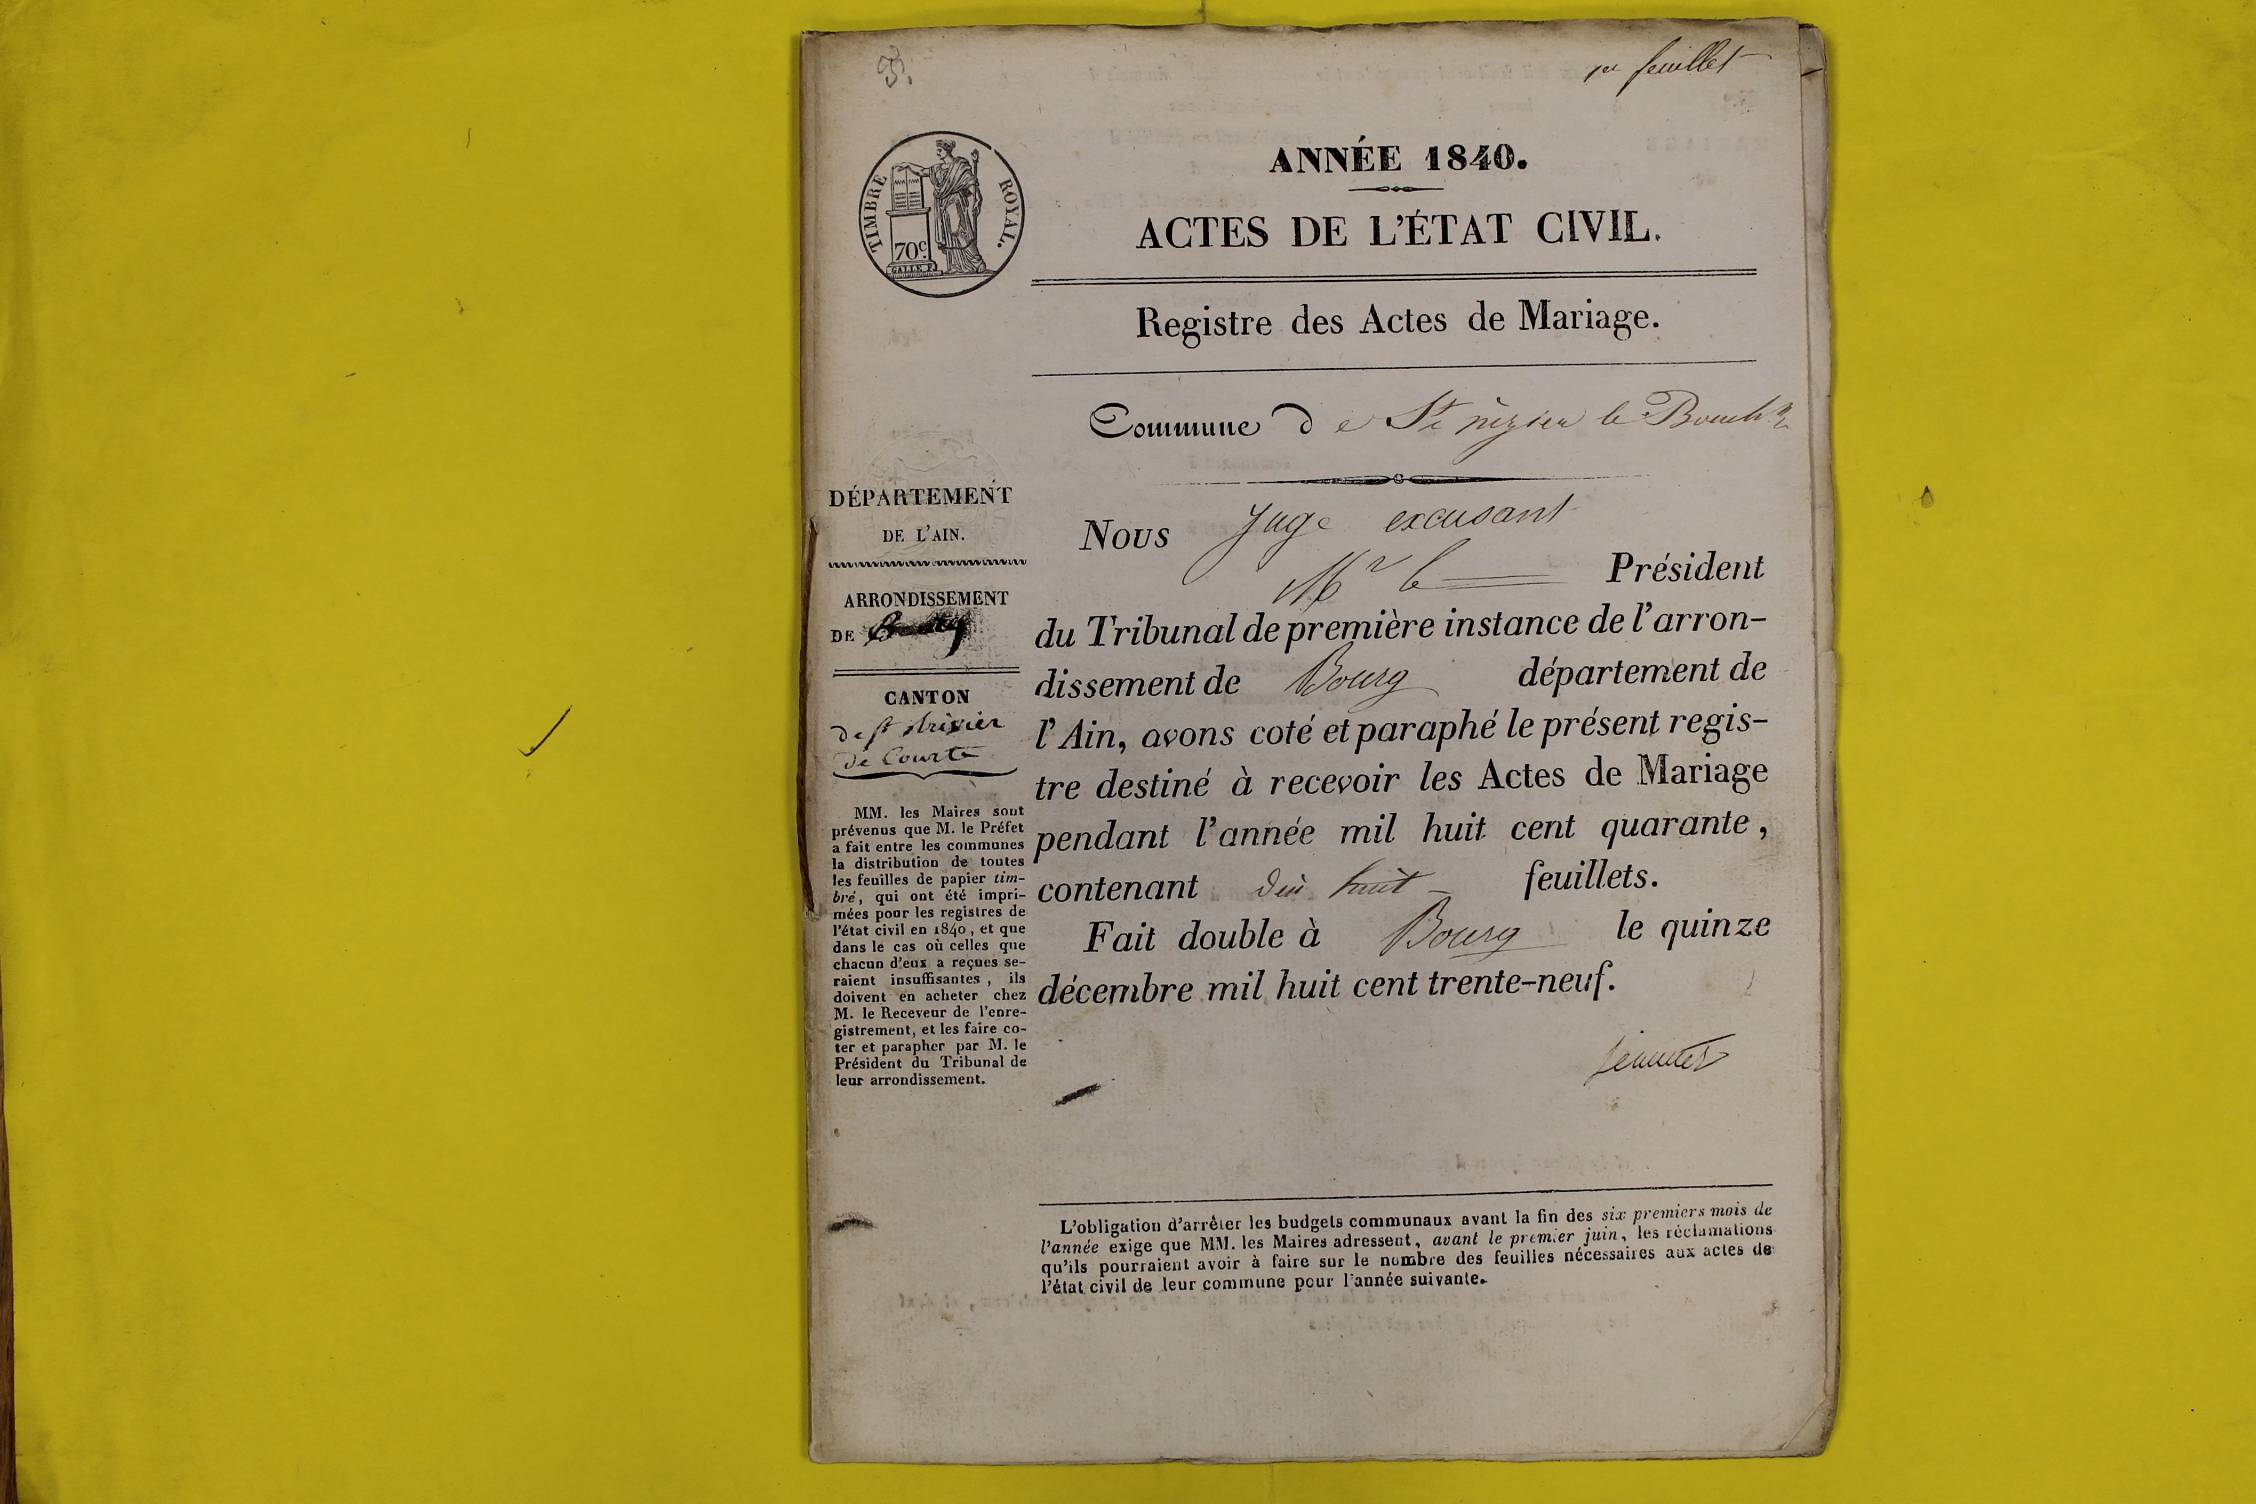 1er feuillet
TIMBRE ROYAL.
70c.
GALLE F.
ANNÉE 1840.
ACTES DE L'ÉTAT CIVIL.
Registre des Actes de Mariage.
Commune de St nizier le Boucht
DÉPARTEMENT
DE L'AIN.
ARRONDISSEMENT
DE
CANTON
de st trivier
de Courte
MM. les Maires sont
prévenus que M. le Préfet
a fait entre les communes
la distribution de toutes
les feuilles de papier tim-
bré, qui ont été impri-
mées pour les registres de
l'état civil en 1840, et que
dans le cas où celles que
chacun d'eux a reçues se-
raient insuffisantes, ils
doivent en acheter chez
M. le Receveur de l'enre-
gistrement, et les faire co-
ter et parapher par M. le
Président du Tribunal de
leur arrondissement.
Nous Juge excusant
Mr le Président
du Tribunal de première instance de l'arron-
dissement de Bourg département de
l'Ain, avons coté et paraphé le présent regis-
tre destiné à recevoir les Actes de Mariage
pendant l'année mil huit cent quarante,
contenant dix huit feuillets.
Fait double à Bourg le quinze
décembre mil huit cent trente-neuf.
L'obligation d'arrêter les budgets communaux avant la fin des six premiers mois de
l'année exige que MM. les Maires adressent, avant le premier juin, les réclamations
qu'ils pourraient avoir à faire sur le nombre des feuilles nécessaires aux actes de
l'état civil de leur commune pour l'année suivante.